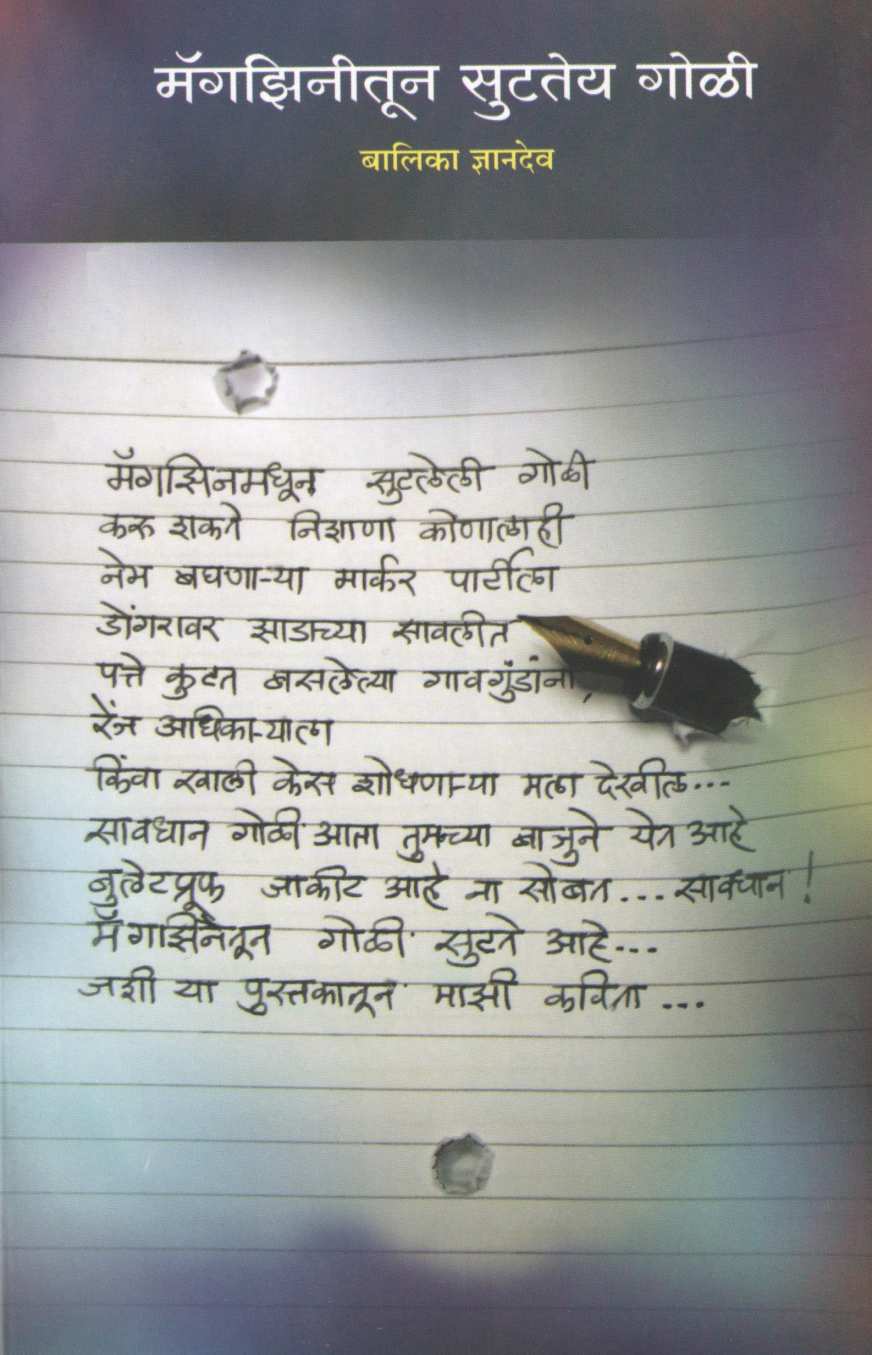 मॅगझिनीतून सुटतेय गोळी
बालिका ज्ञानदेव
मॅगझिनमधून सुटलेली गोळी
करू शकते निशाणा कोणालाही
नेम बघणाऱ्या मार्कर पार्टीला
डोंगरावर झाडाच्या सावलीत
पत्ते कुटत बसलेल्या गावगुंडांना,
रेंज अधिकाऱ्याला
किंवा खाली केस शोधणाऱ्या मला देखील...
सावधान गोळी आता तुमच्या बाजुने येत आहे
बुलेटप्रूफ जाकीट आहे ना सोबत... सावधान!
मॅगझिनेतून गोळी सुटते आहे...
जशी या पुस्तकातून माझी कविता ...